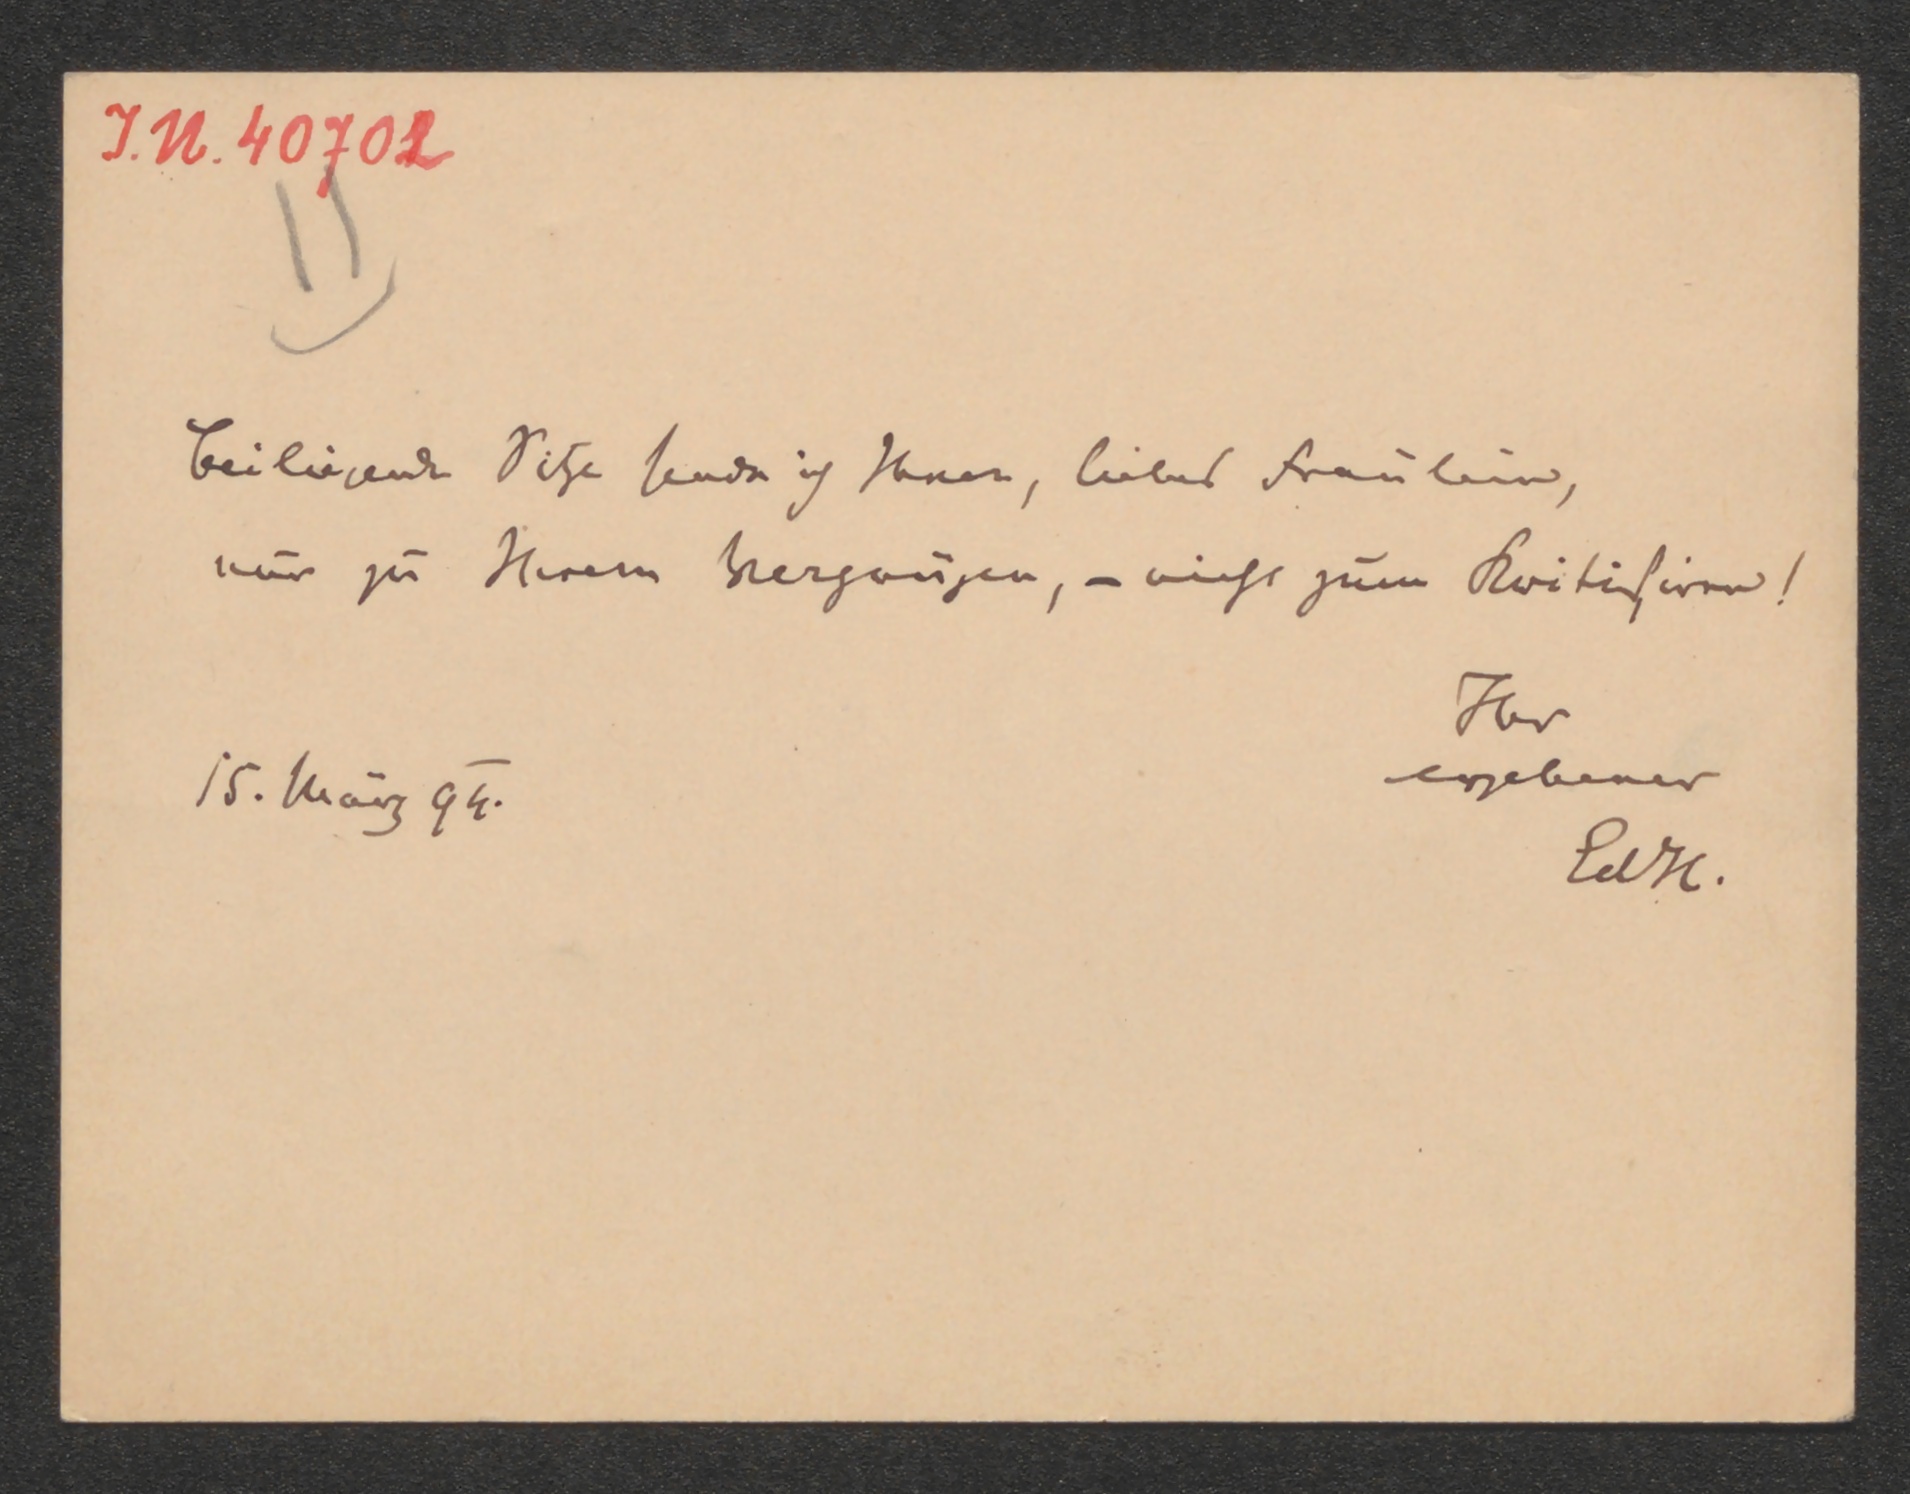 I.N. 40702
Beiliegende Sitze sende ich Ihnen, liebes Fräulein,
nur zu Ihrem Vergnügen, – nicht zum Kritisiren!
Ihr
ergebener
15. März 94.
EdH.